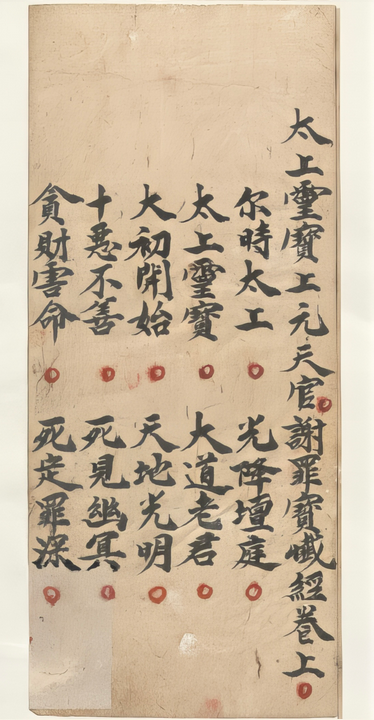 太上靈寶上元天官謝罪寶懴經卷上
尔時太上 光降壇庭
太上靈寶 大道老君
大初開始 天地光明
十惡不善 死見幽冥
貪財害命 死定罪深